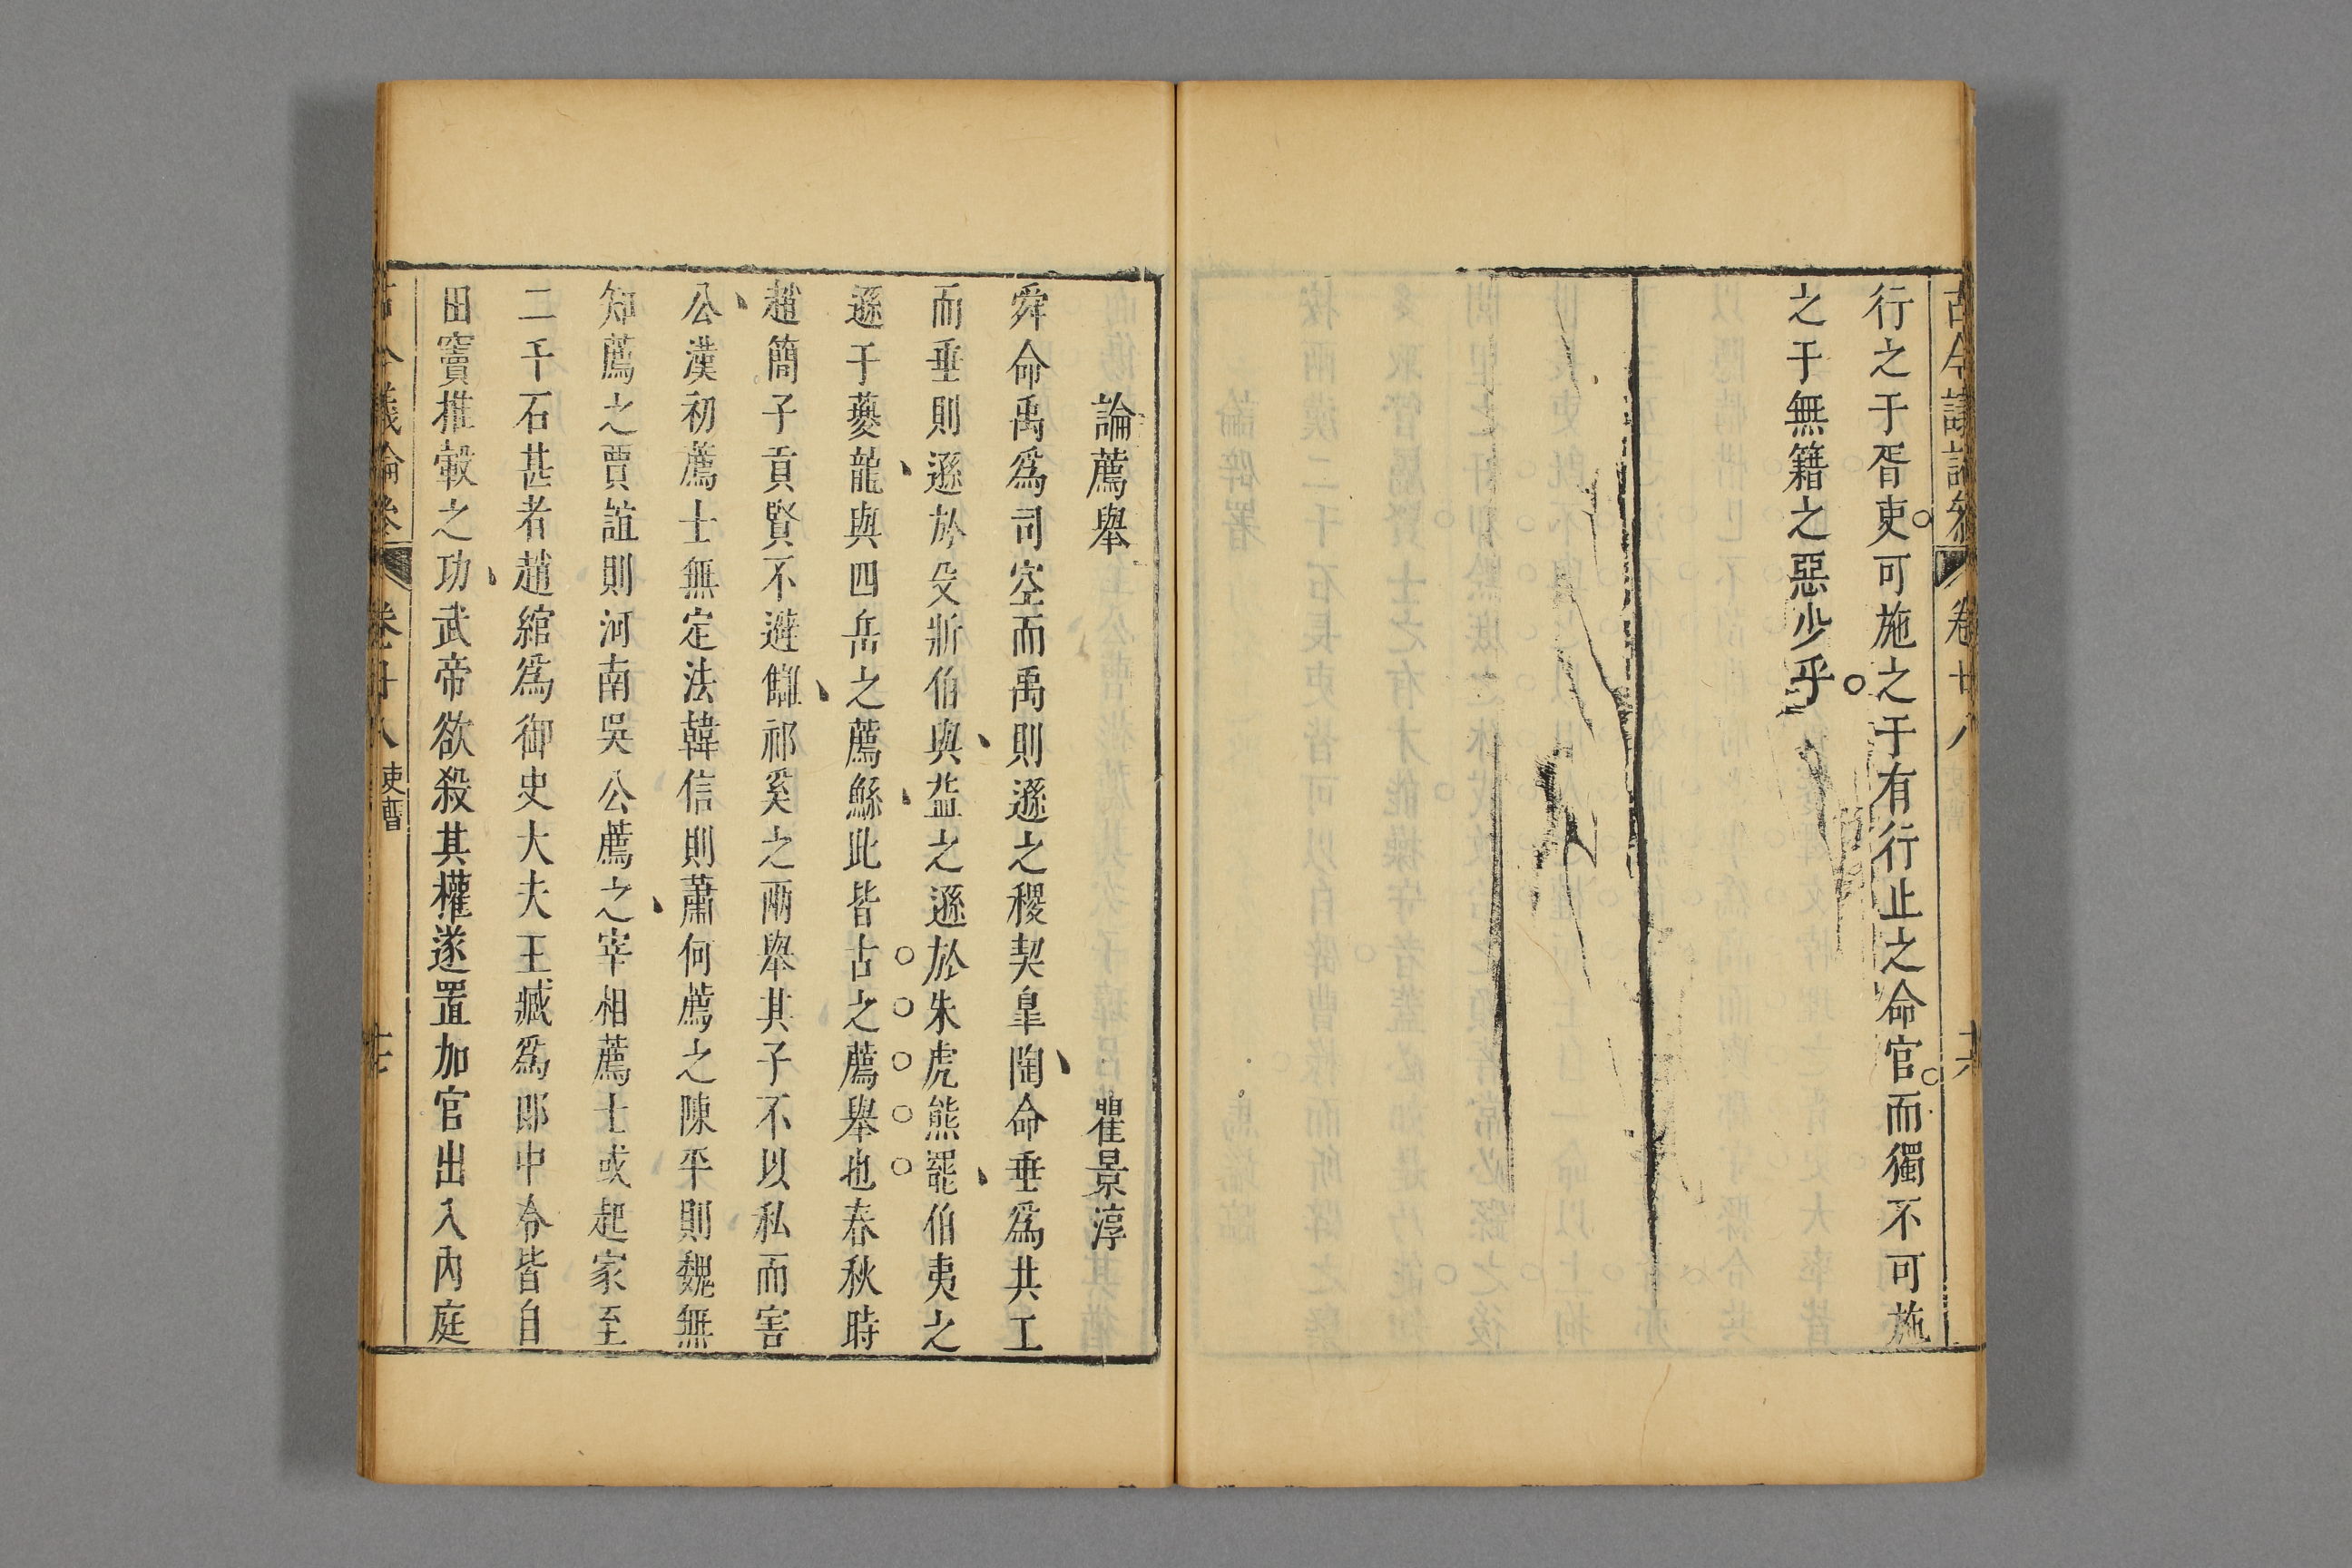 古今議論參 卷廿八 十六
行之于胥吏可施之于有行止之命官而獨不可施
之于無籍之惡少乎
論薦舉 瞿景淳
舜命禹爲司空而禹則遜之稷契臯陶命垂爲共工
而垂則遜於殳斨伯與益之遜於朱虎熊罷伯夷之
遜于夔龍與四岳之薦鯀此皆古之薦舉也春秋時
趙簡子貢賢不避讎祁奚之兩舉其子不以私而害
公漢初薦士無定法韓信則蕭何薦之陳平則魏無
知薦之賈誼則河南吳公薦之宰相薦士或起家至
二千石甚者趙綰爲御史大夫王臧爲郎中令皆自
田竇推轂之功武帝欲殺其權遂置加官出入內庭
古今議論參 卷廿八 吏曹 十七